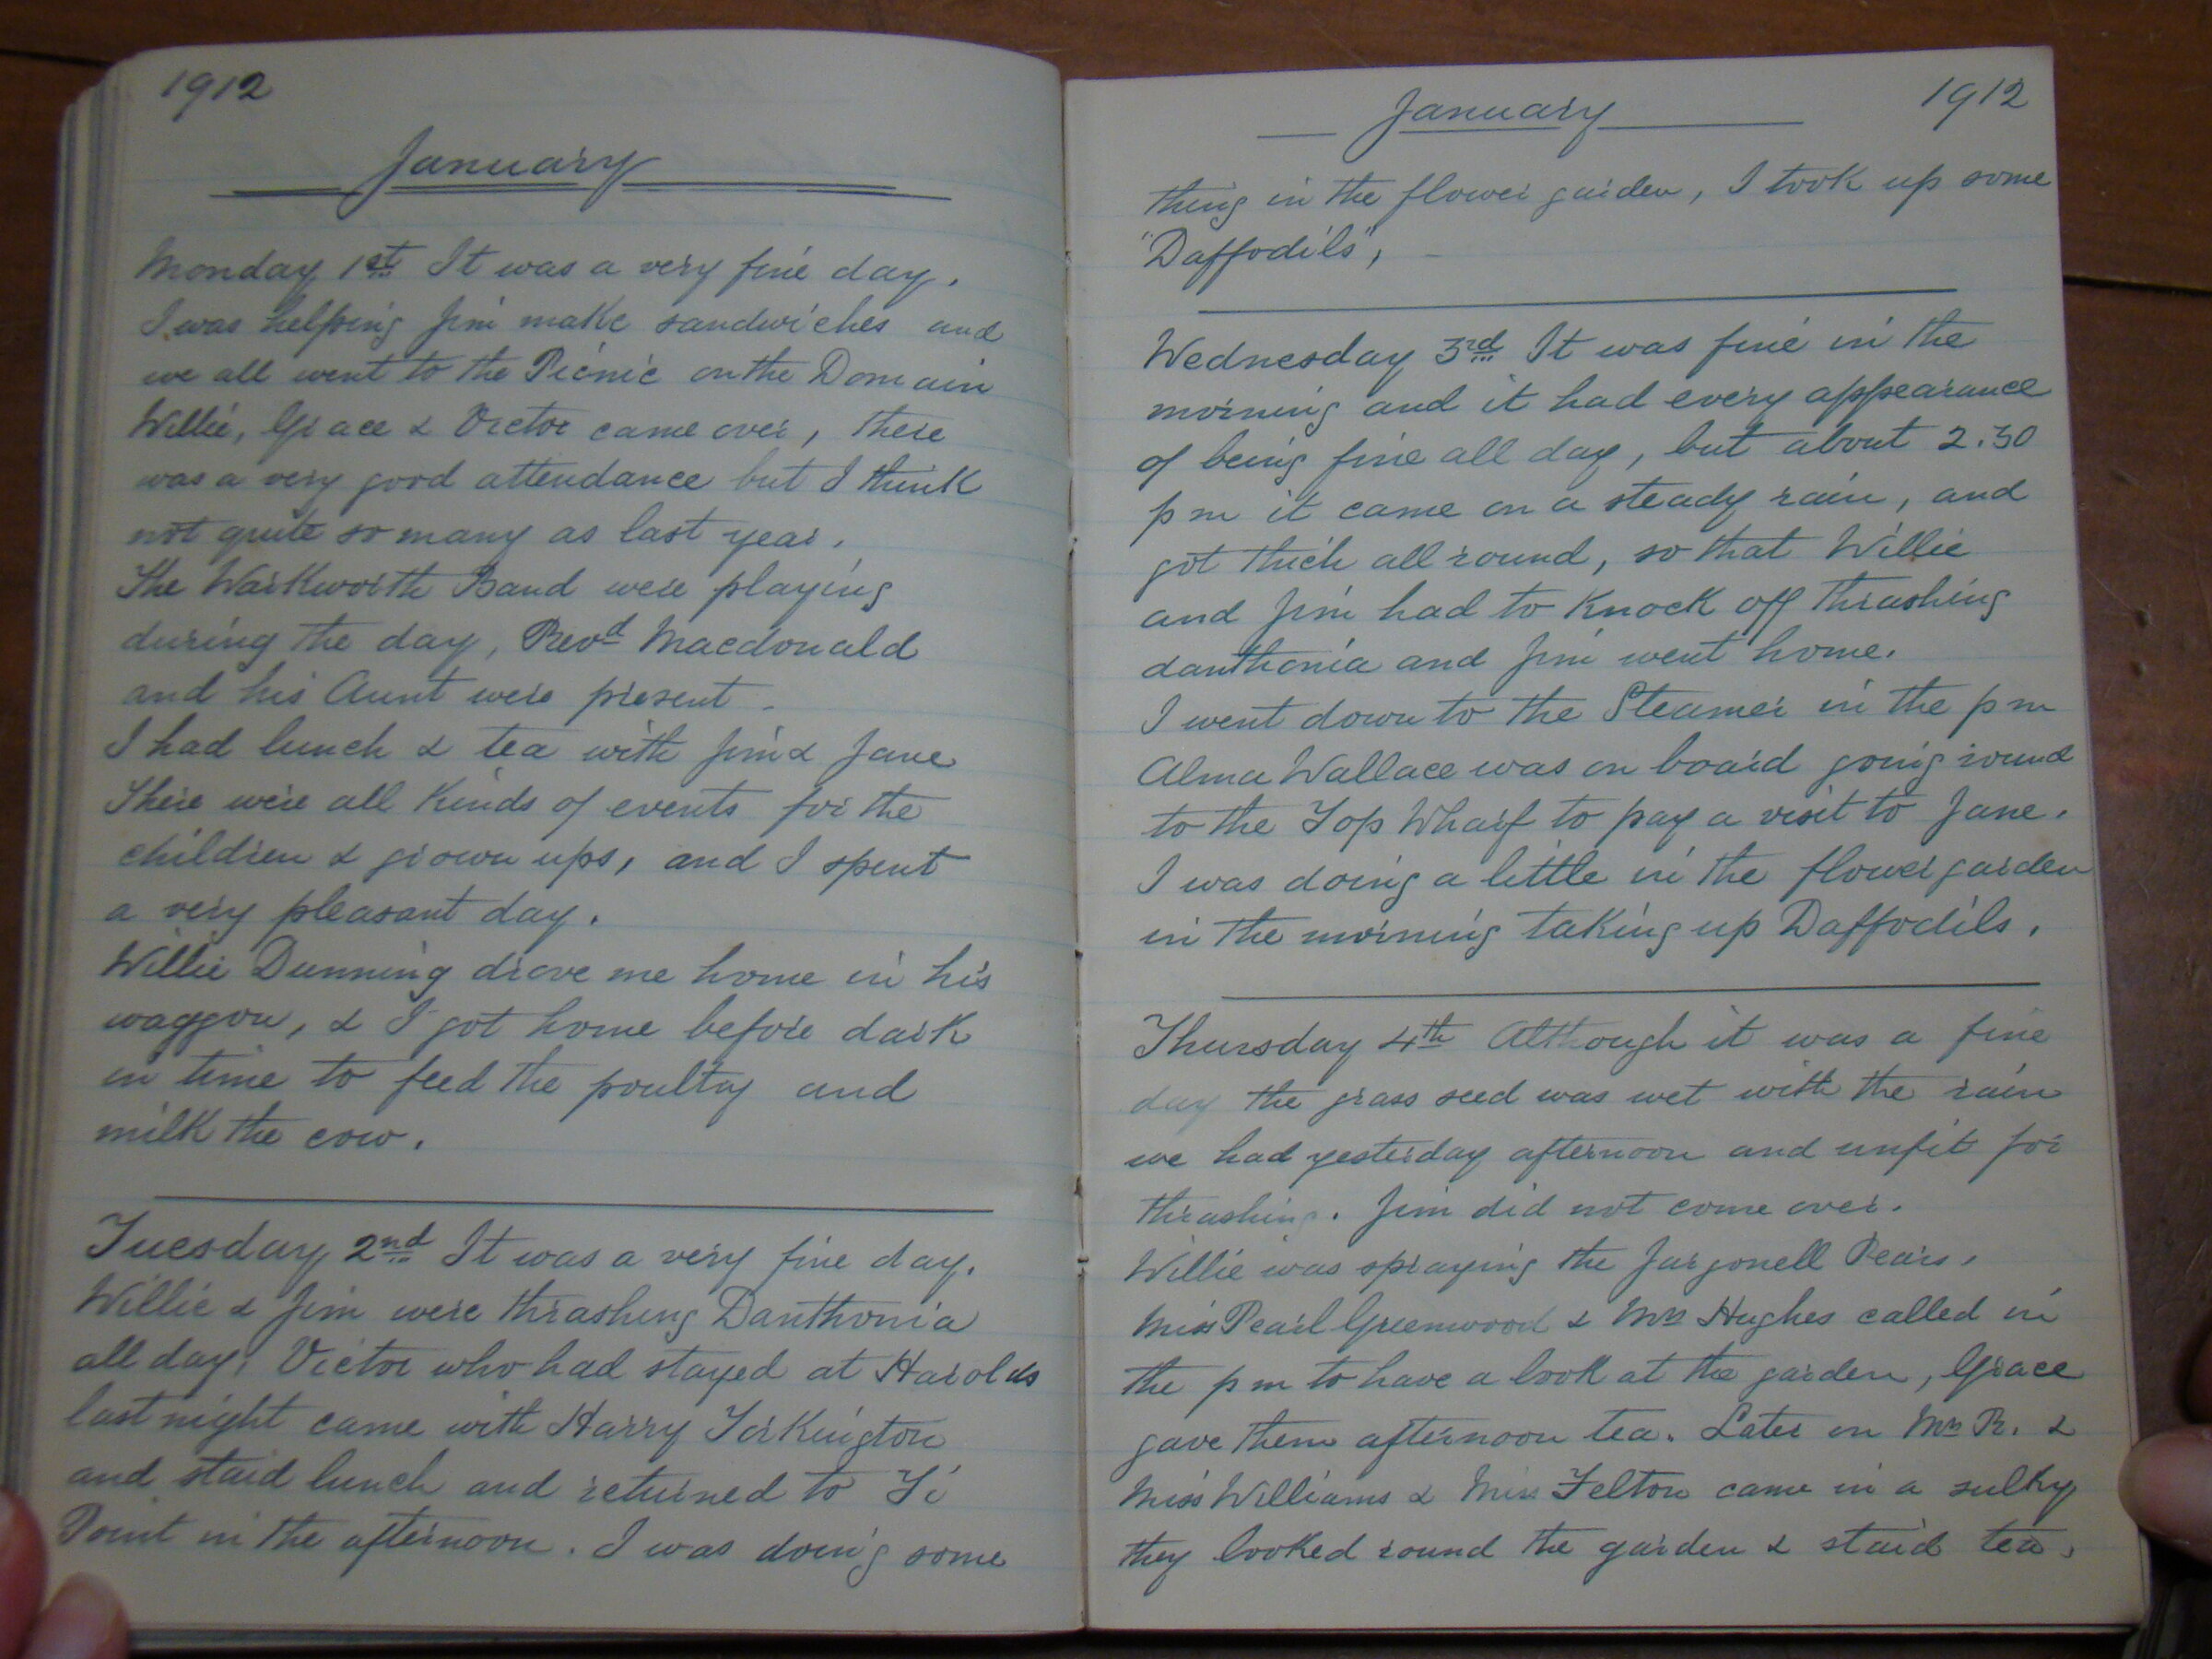 1912
January
Monday 1st It was a very fine day.
I was helping Jim make sandwiches and
we all went to the Picnic on the Domain
Willie, Grace & Victor came over, there
was a very good attendance but I think
not quite so many as last year.
The Warkworth Band were playing
during the day, Revd Macdonald
and his Aunt were present.
I had lunch & tea with Jim & Jane
There were all kinds of events for the
children & grown ups, and I spent
a very pleasant day.
Willie Dunning drove me home in his
waggon, & I got home before dark
in time to feed the poultry and
milk the cow.
Tuesday 2nd It was a very fine day.
Willie & Jim were thrashing Danthonia
all day, Victor who had stayed at Harolds
last night came with Harry Torkington
and staid lunch and returned to Ti
Point in the afternoon. I was doing some
January
1912
thing in the flower garden, I took up some
"Daffodils",
Wednesday 3rd It was fine in the
morning and it had every appearance
of being fine all day, but about 2.30
pm it came on a steady rain, and
got thick all round, so that Willie
and Jim had to knock off thrashing
danthonia and Jim went home.
I went down to the Steamer in the pm
Alma Wallace was on board going round
to the Top Wharf to pay a visit to Jane.
I was doing a little in the flower garden
in the morning taking up Daffodils.
Thursday 4th Although it was a fine
day the grass seed was wet with the rain
we had yesterday afternoon and unfit for
thrashing. Jim did not come over.
Willie was spraying the Jargonell Pears.
Miss Pearl Greenwood & Mrs Hughes called in
the pm to have a look at the garden, Grace
gave them afternoon tea. Later on Mrs R. &
Miss Williams & Miss Felton came in a sulky
they looked round the garden & staid tea.